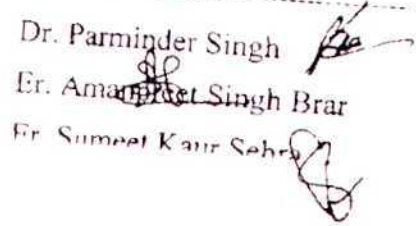 Dr. Parminder Singh
Er. Amanpreet Singh Brar
Er. Sumeet Kaur Sehra